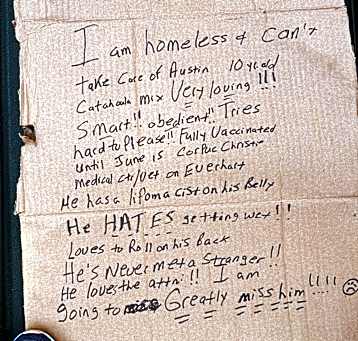 I am homeless & can't
take care of Austin 10 yr old
Catahoula mix Very loving!!!
Smart!! obedient!! Tries
hard to Please!! Fully Vaccinated
until June 15 Corpuc Christi
Medical ctr/vet on Everhart
He has a lipoma cist on his Belly
He HATES getting wet!!
Loves to Roll on his Back
He's Never met a Stranger!!
He loves the attn!! I am
going to Greatly miss him!!!!